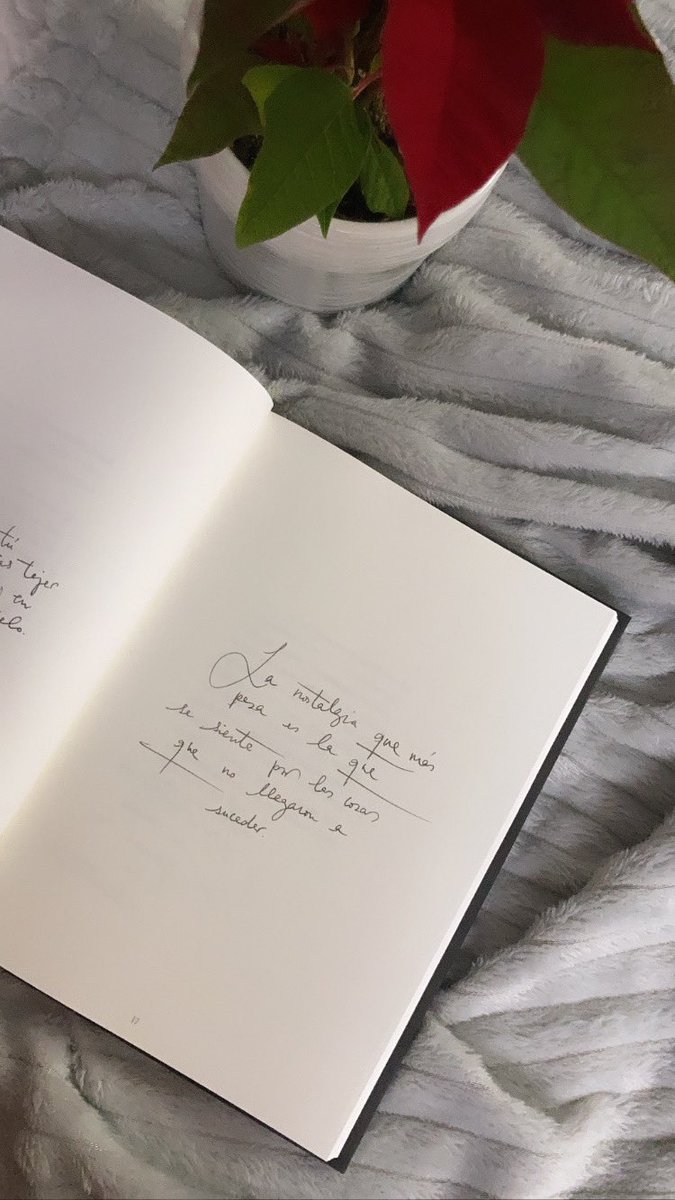 tú
tejer
en
La nostalgia que más
pesa es la que
se siente por las cosas
que no llegaron a
suceder.
17